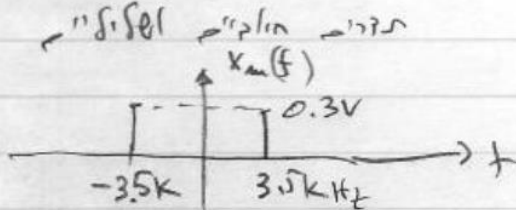 תדרים חיוביים ושליליים
Xm(f)
0.3V
f
-3.5K 3.5K Hz